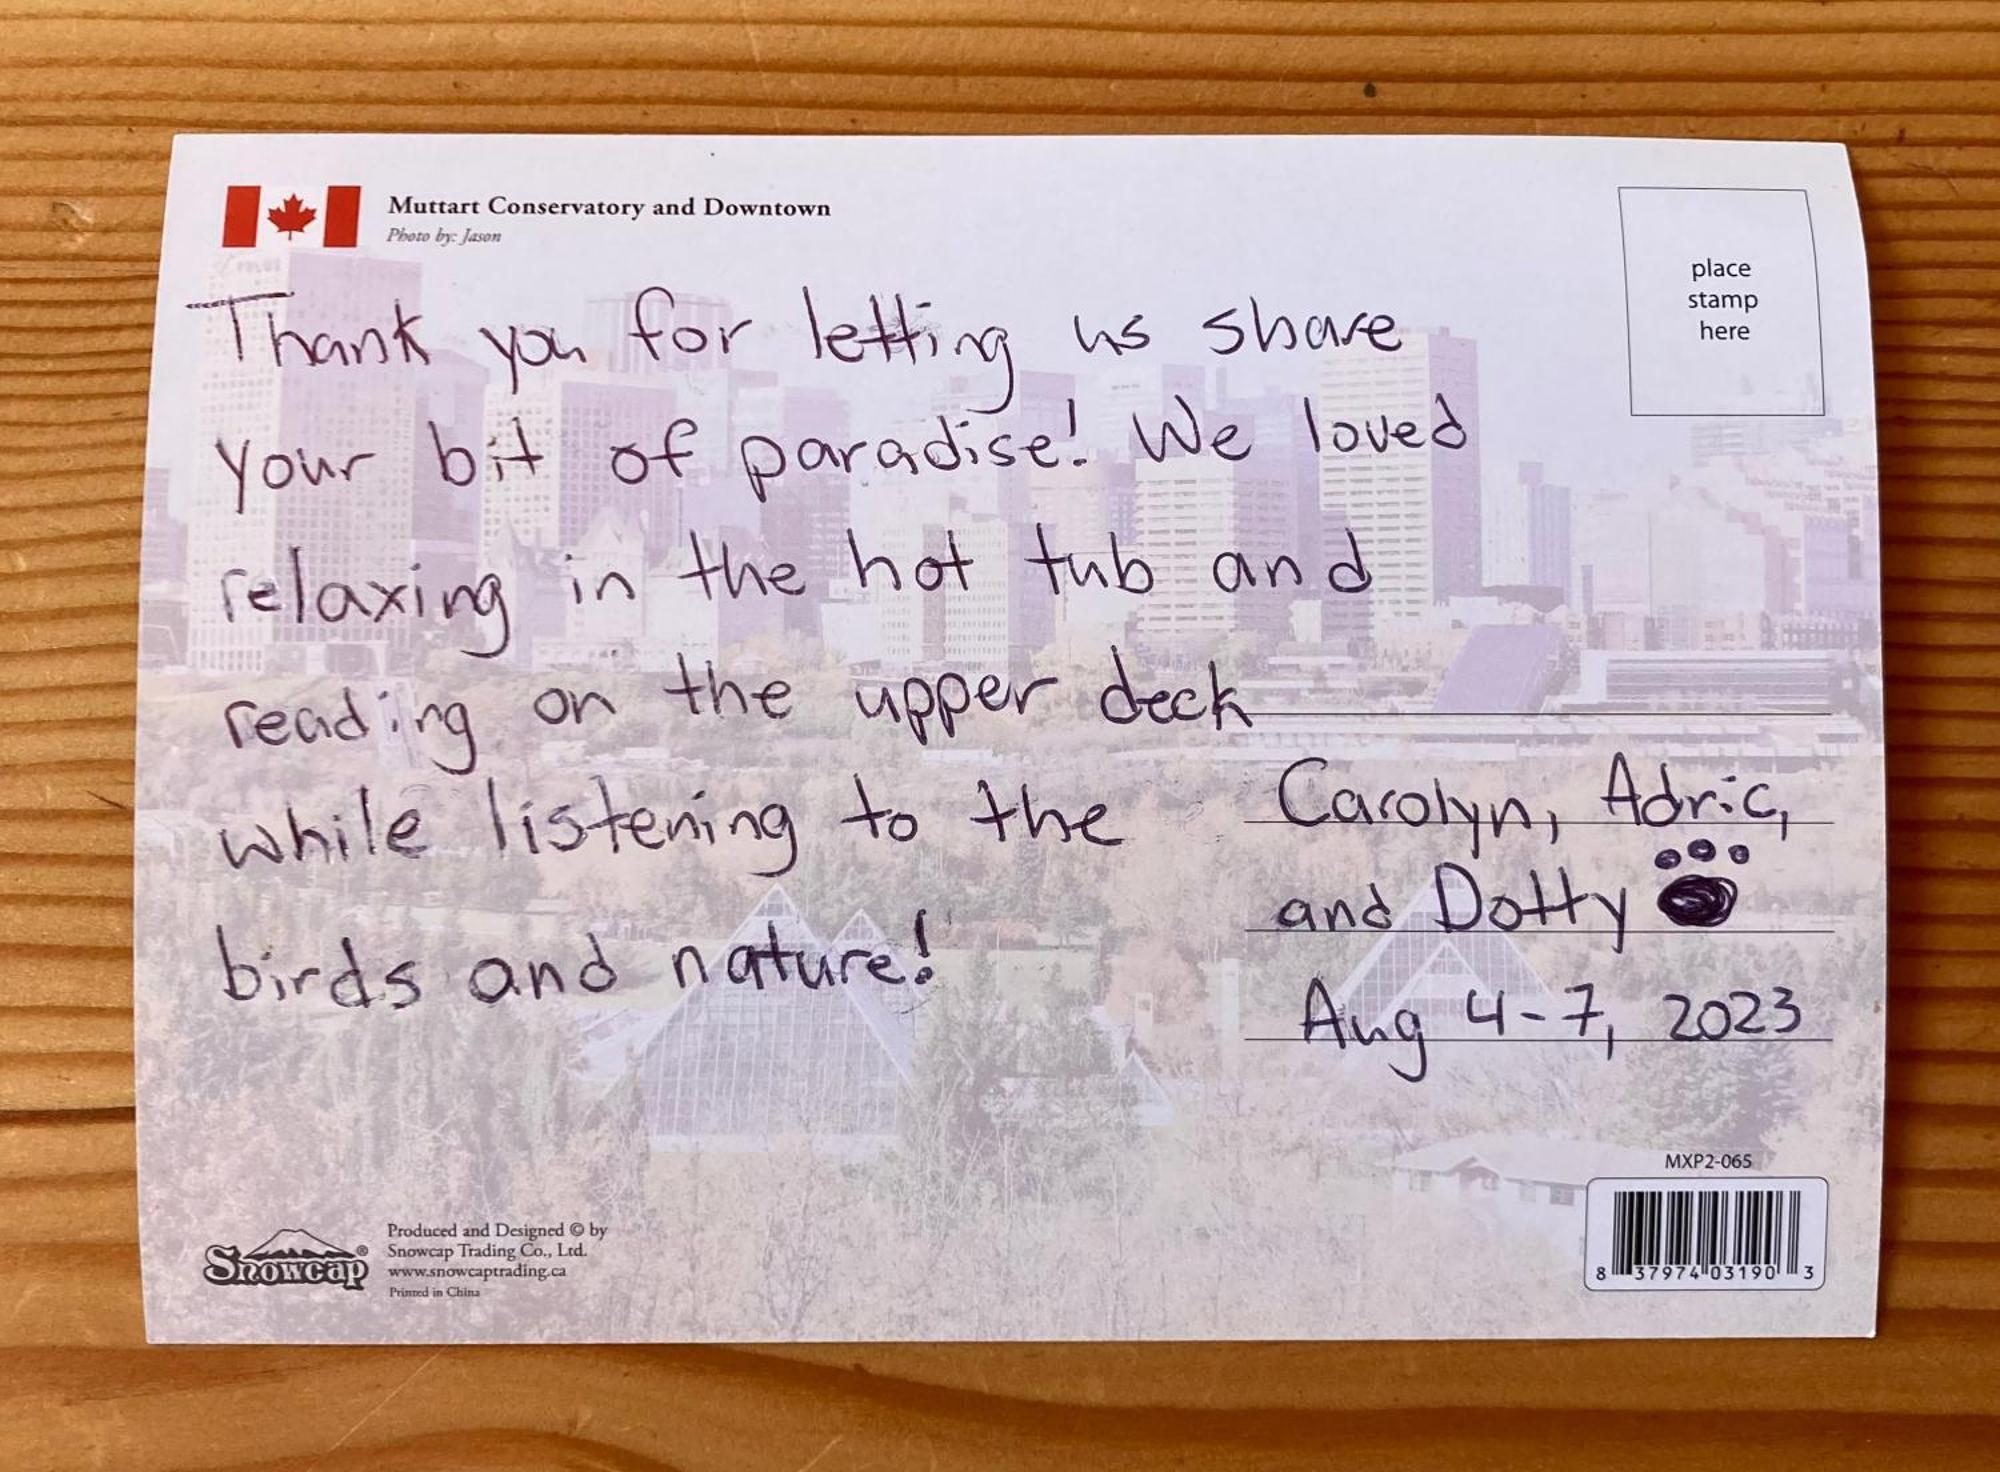 Muttart Conservatory and Downtown
Photo by: Jason
place
stamp
here
Thank you for letting us share
your bit of paradise! We loved
relaxing in the hot tub and
reading on the upper deck
while listening to the
birds and nature!
Carolyn, Adric,
and Dotty
Aug 4-7, 2023
MXP2-065
8 37974 03190 3
Snowcap®
Produced and Designed © by
Snowcap Trading Co., Ltd.
www.snowcaptrading.ca
Printed in China